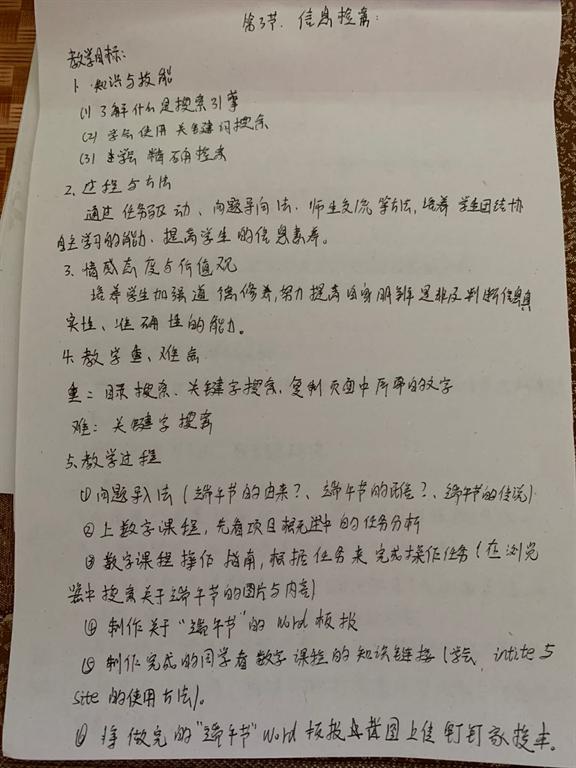 第3节. 信息检索:
教学目标:
1. 知识与技能
(1) 了解什么是搜索引擎
(2) 学会使用关键词搜索
(3) 学会精确检索
2. 过程与方法
通过任务驱动、问题导向法、师生交流等方法,培养学生团结协
自主学习的能力,提高学生的信息素养。
3. 情感态度与价值观
培养学生加强道德修养,努力提高自身明辨是非及判断信息真
实性、准确性的能力。
4. 教学重、难点
重:目录搜索、关键字搜索、复制页面中所需的文字
难:关键字搜索
5. 教学过程
①问题导入法(端午节的由来?、端午节的习俗?、端午节的传说)
②上数字课程,先看项目 中的任务分析
③数字课程操作指南,根据任务来完成操作任务(在浏览
器中搜索关于端午节的图片与内容)
④制作关于“端午节”的Word板报
⑤制作完成的同学看数字课程的知识链接(学会 intitle与
site的使用方法)。
⑥将做完的“端午节”Word板报 截图上传钉钉家校本。